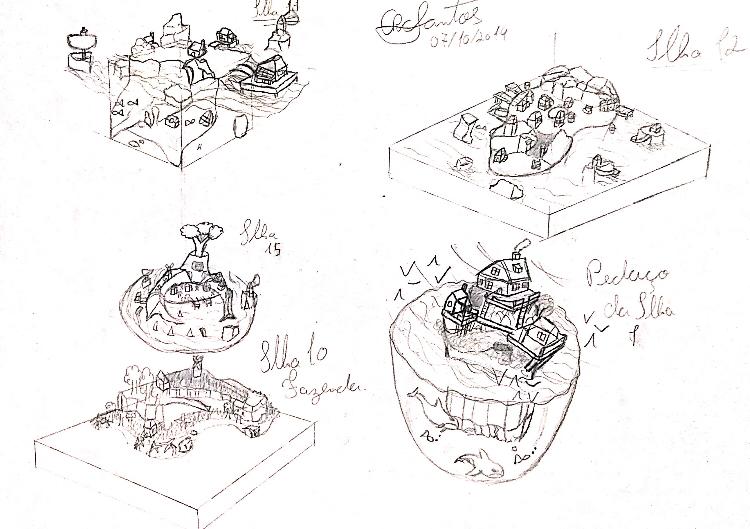 Ilha
07/10/2014
Ilha 12
Ilha
15
Ilha 10
Fazenda.
Pedaço
da Ilha
1